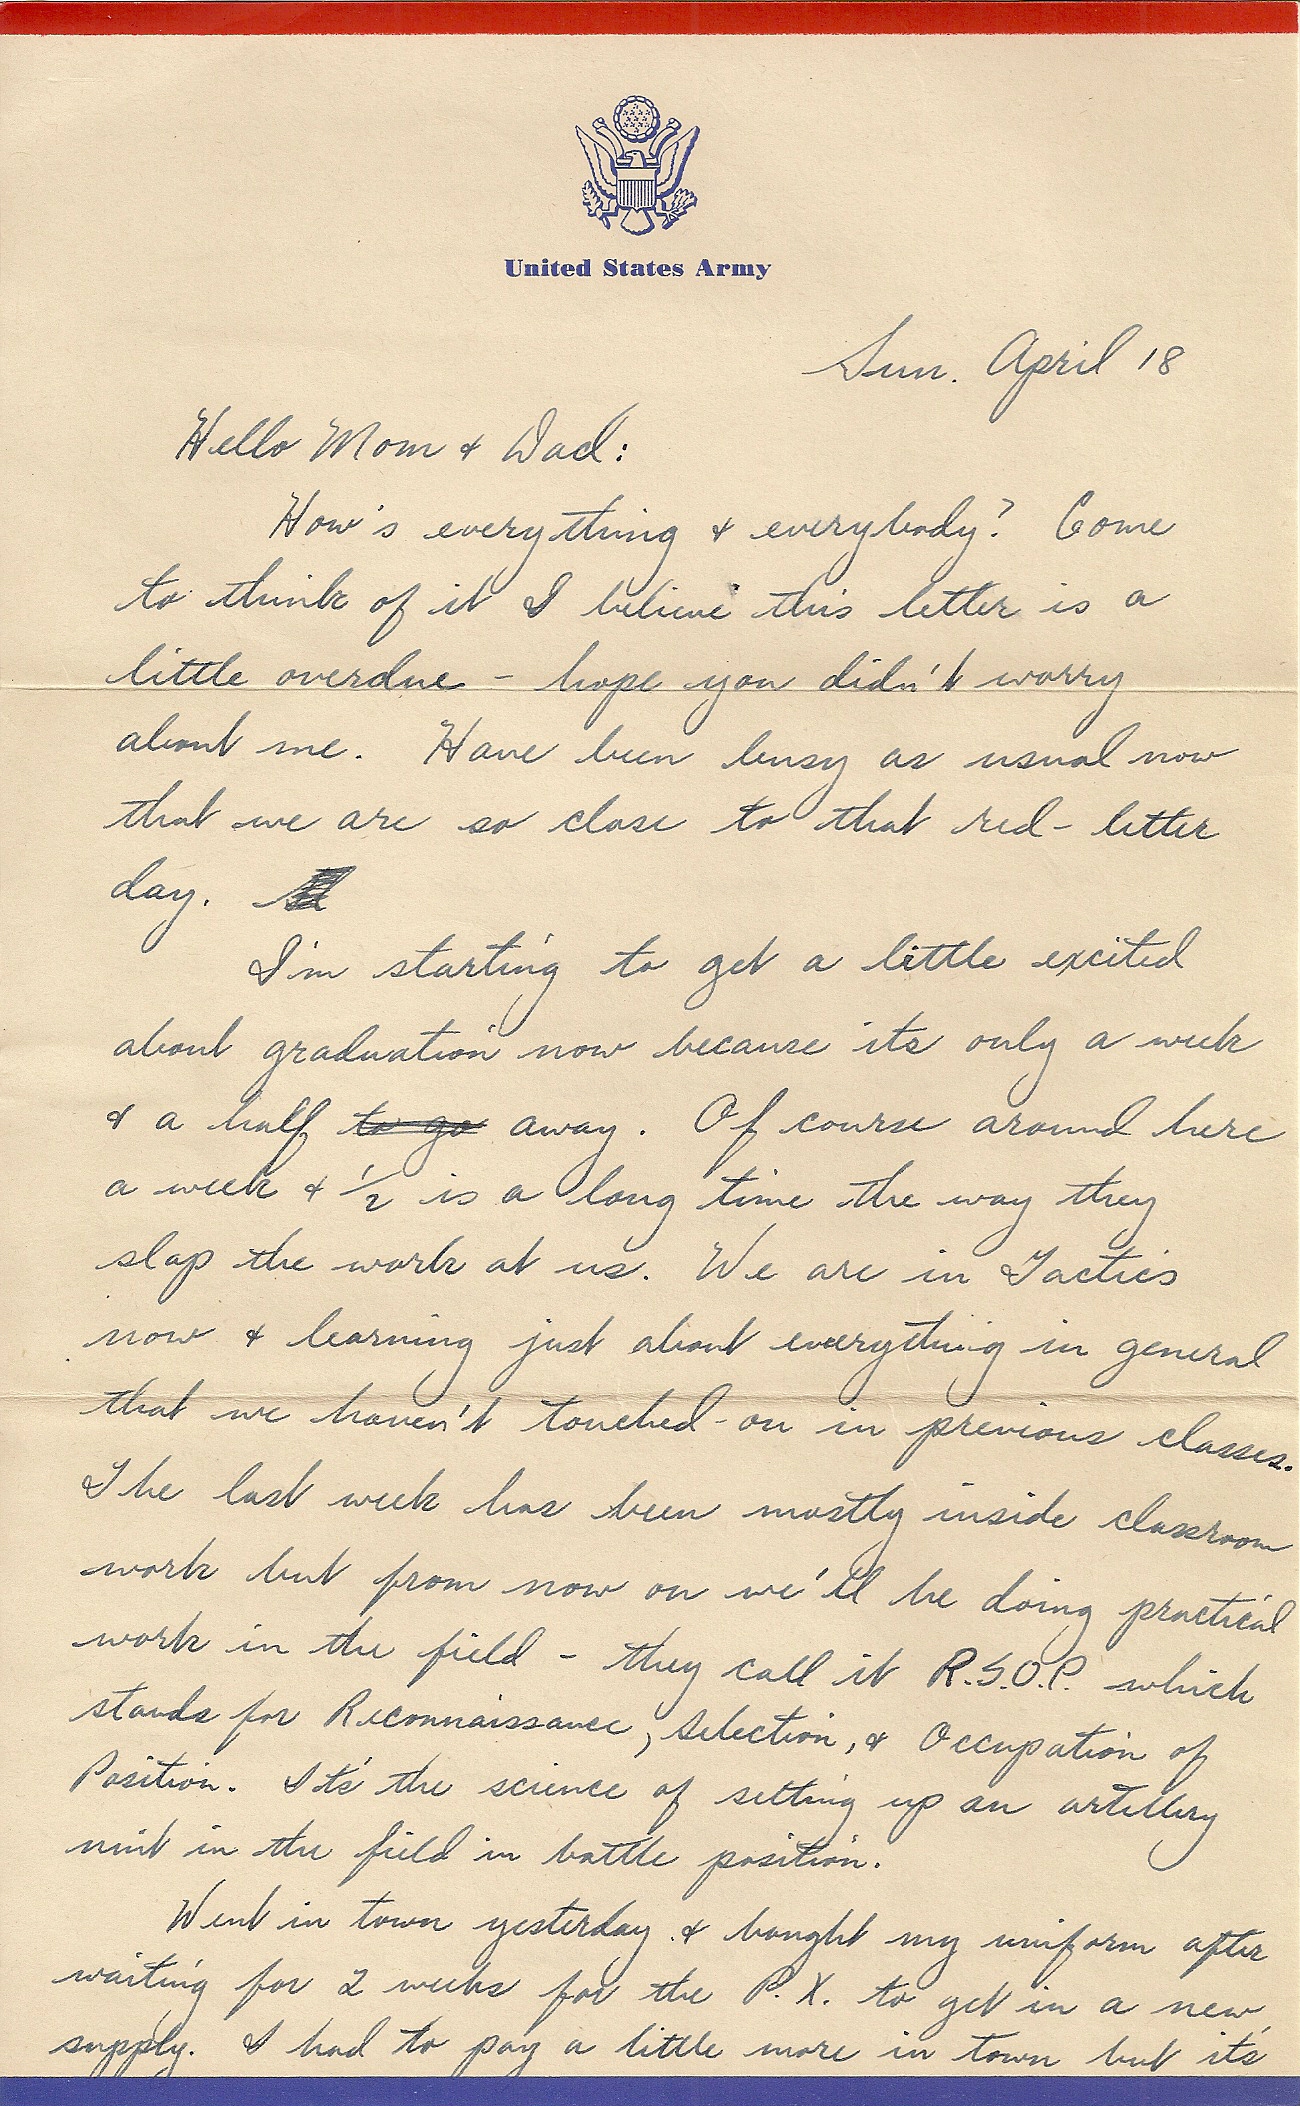 United States Army
Sun. April 18
Hello Mom & Dad:
How's everything & everybody? Come
to think of it I believe this letter is a
little overdue - hope you didn't worry
about me. Have been busy as usual now
that we are so close to that red-letter
day.
I'm starting to get a little excited
about graduation now because its only a week
& a half to go away. Of course around here
a week & 1/2 is a long time the way they
slap the work at us. We are in Tactics
now & learning just about everything in general
that we haven't touched-on in previous classes.
The last week has been mostly inside classroom
work but from now on we'll be doing practical
work in the field - they call it R.S.O.P. which
stands for Reconnaissance, Selection, & Occupation of
Position. It's the science of setting up an artillery
unit in the field in battle position.
Went in town yesterday & bought my uniform after
waiting for 2 weeks for the P.X. to get in a new
supply. I had to pay a little more in town but it's